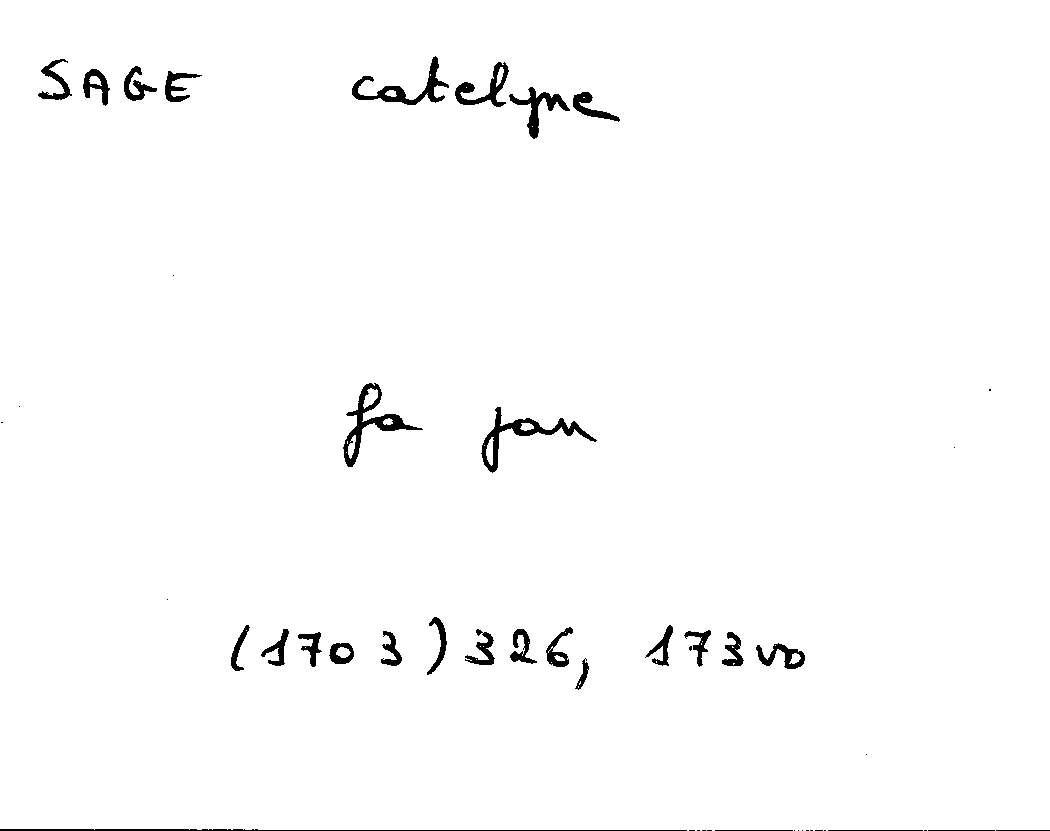 SAGE catelyne
fa jan
(1703) 326, 173vo